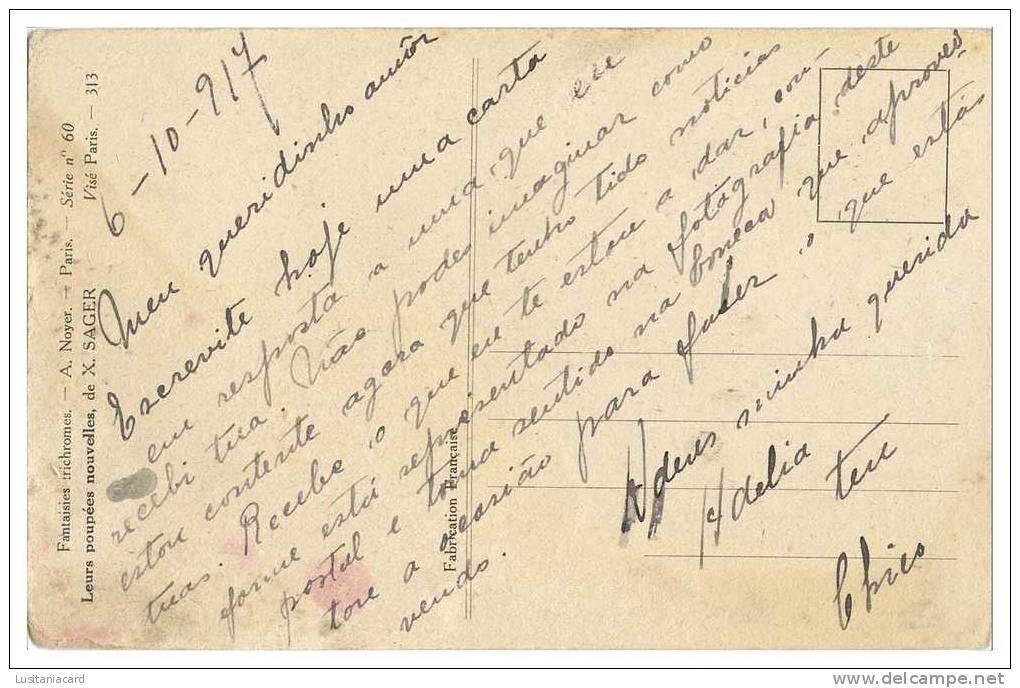 Fantaisies trichromes. — A. Noyer. — Paris. — Série nº 60
Leurs poupées nouvelles, de X. SAGER Visé Paris. — 313
Fabrication Française
6-10-917
Meu queridinho amôr
Escrevite hoje uma carta
em resposta a uma que eu
recebi tua. Não podes imaginar como
estou contente agora que tenho tido noticias
tuas. Recebe o que eu te estou a dar, con-
forme está representado na fotografia deste
postal e toma sentido na boneca que aprovei-
tou a ocasião para fazer o que estás
vendo.
Adeus minha querida
Adelia
teu
Chico
Lusitaniacard
www.delcampe.net